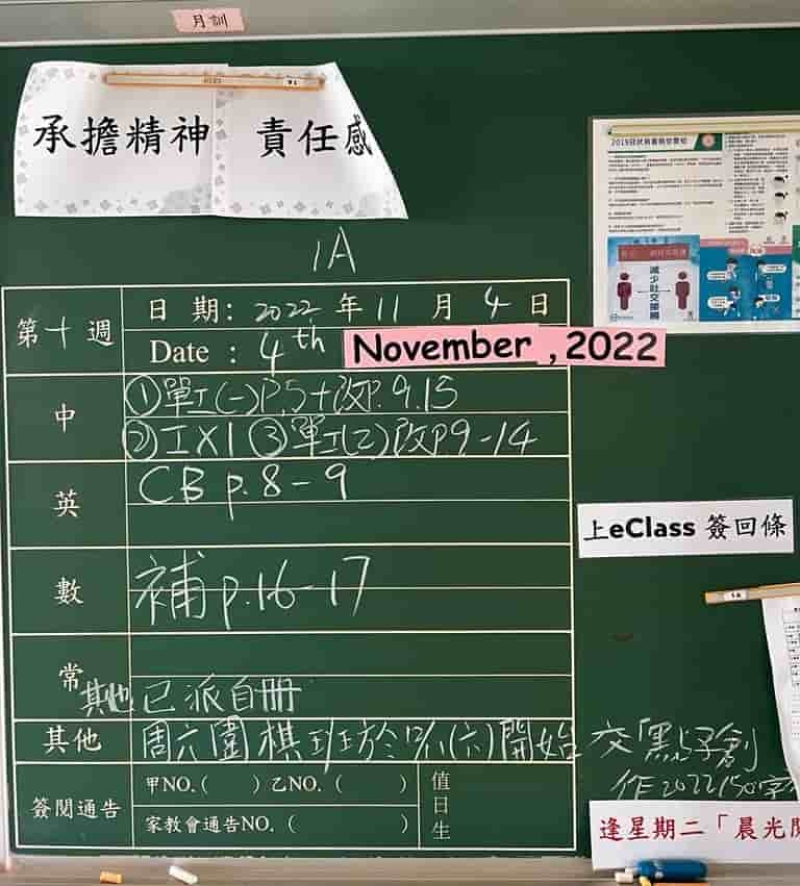 月訓
承擔精神 責任感
1A
第十週
日期: 2022 年 11 月 4 日
Date : 4th November , 2022
中
①單工(一)P.5+改P.9.15
②工X1 ③單工(二)改P9-14
英
CB p.8-9
數
補 p.16-17
常
其他 已派自冊
其他
周六圍棋班於 (六)開始 交「點子創
作2022150字
簽閱通告
甲NO.( ) 乙NO.( )
家教會通告NO.( )
值日生
減少社交接觸
上eClass 簽回條
逢星期二「晨光閱